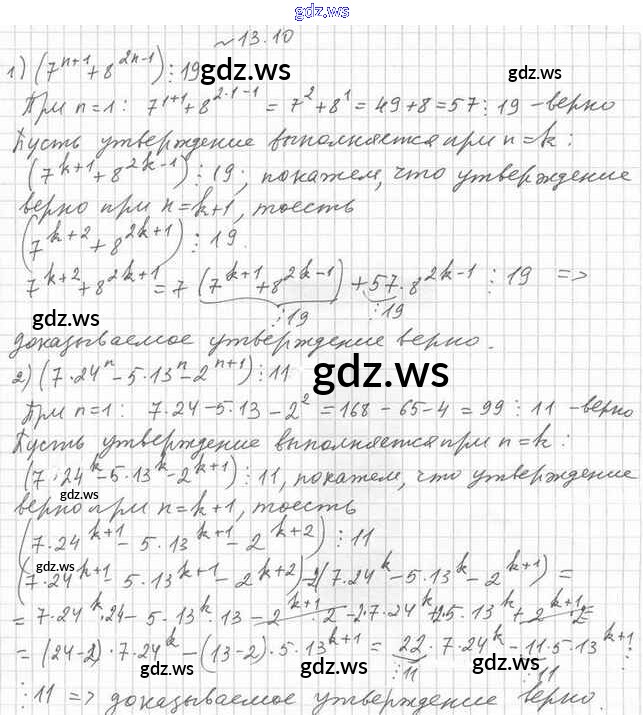 gdz.ws
№13.10
1) (7^{n+1}+8^{2n-1})⋮19
gdz.ws
При n=1: 7^{1+1}+8^{2·1-1} = 7^2+8^1 = 49+8=57⋮19 -верно
Пусть утверждение выполняется при n=k:
(7^{k+1}+8^{2k-1})⋮19; покажем, что утверждение
верно при n=k+1, тоесть
(7^{k+2}+8^{2k+1})⋮19.
7^{k+2}+8^{2k+1}=7(7^{k+1}+8^{2k-1})+57·8^{2k-1}⋮19 =>
⋮19 ⋮19
gdz.ws
доказываемое утверждение верно.
2) (7·24^n-5·13^n-2^{n+1})⋮11
gdz.ws
При n=1: 7·24-5·13-2^2=168-65-4=99⋮11 -верно
Пусть утверждение выполняется при n=k:
(7·24^k-5·13^k-2^{k+1})⋮11, покажем, что утверждение
gdz.ws
верно при n=k+1, тоесть
(7·24^{k+1}-5·13^{k+1}-2^{k+2})⋮11
gdz.ws
(7·24^{k+1}-5·13^{k+1}-2^{k+2})-2(7·24^k-5·13^k-2^{k+1})=
=7·24^k·24-5·13^k·13-2^{k+1}·2-2·7·24^k+2·5·13^k+2^{k+1}·2=
=(24-2)·7·24^k-(13-2)·5·13^{k+1}=22·7·24^k-11·5·13^{k+1}⋮
⋮11 ⋮11
gdz.ws gdz.ws gdz.ws
⋮11 => доказываемое утверждение верно.